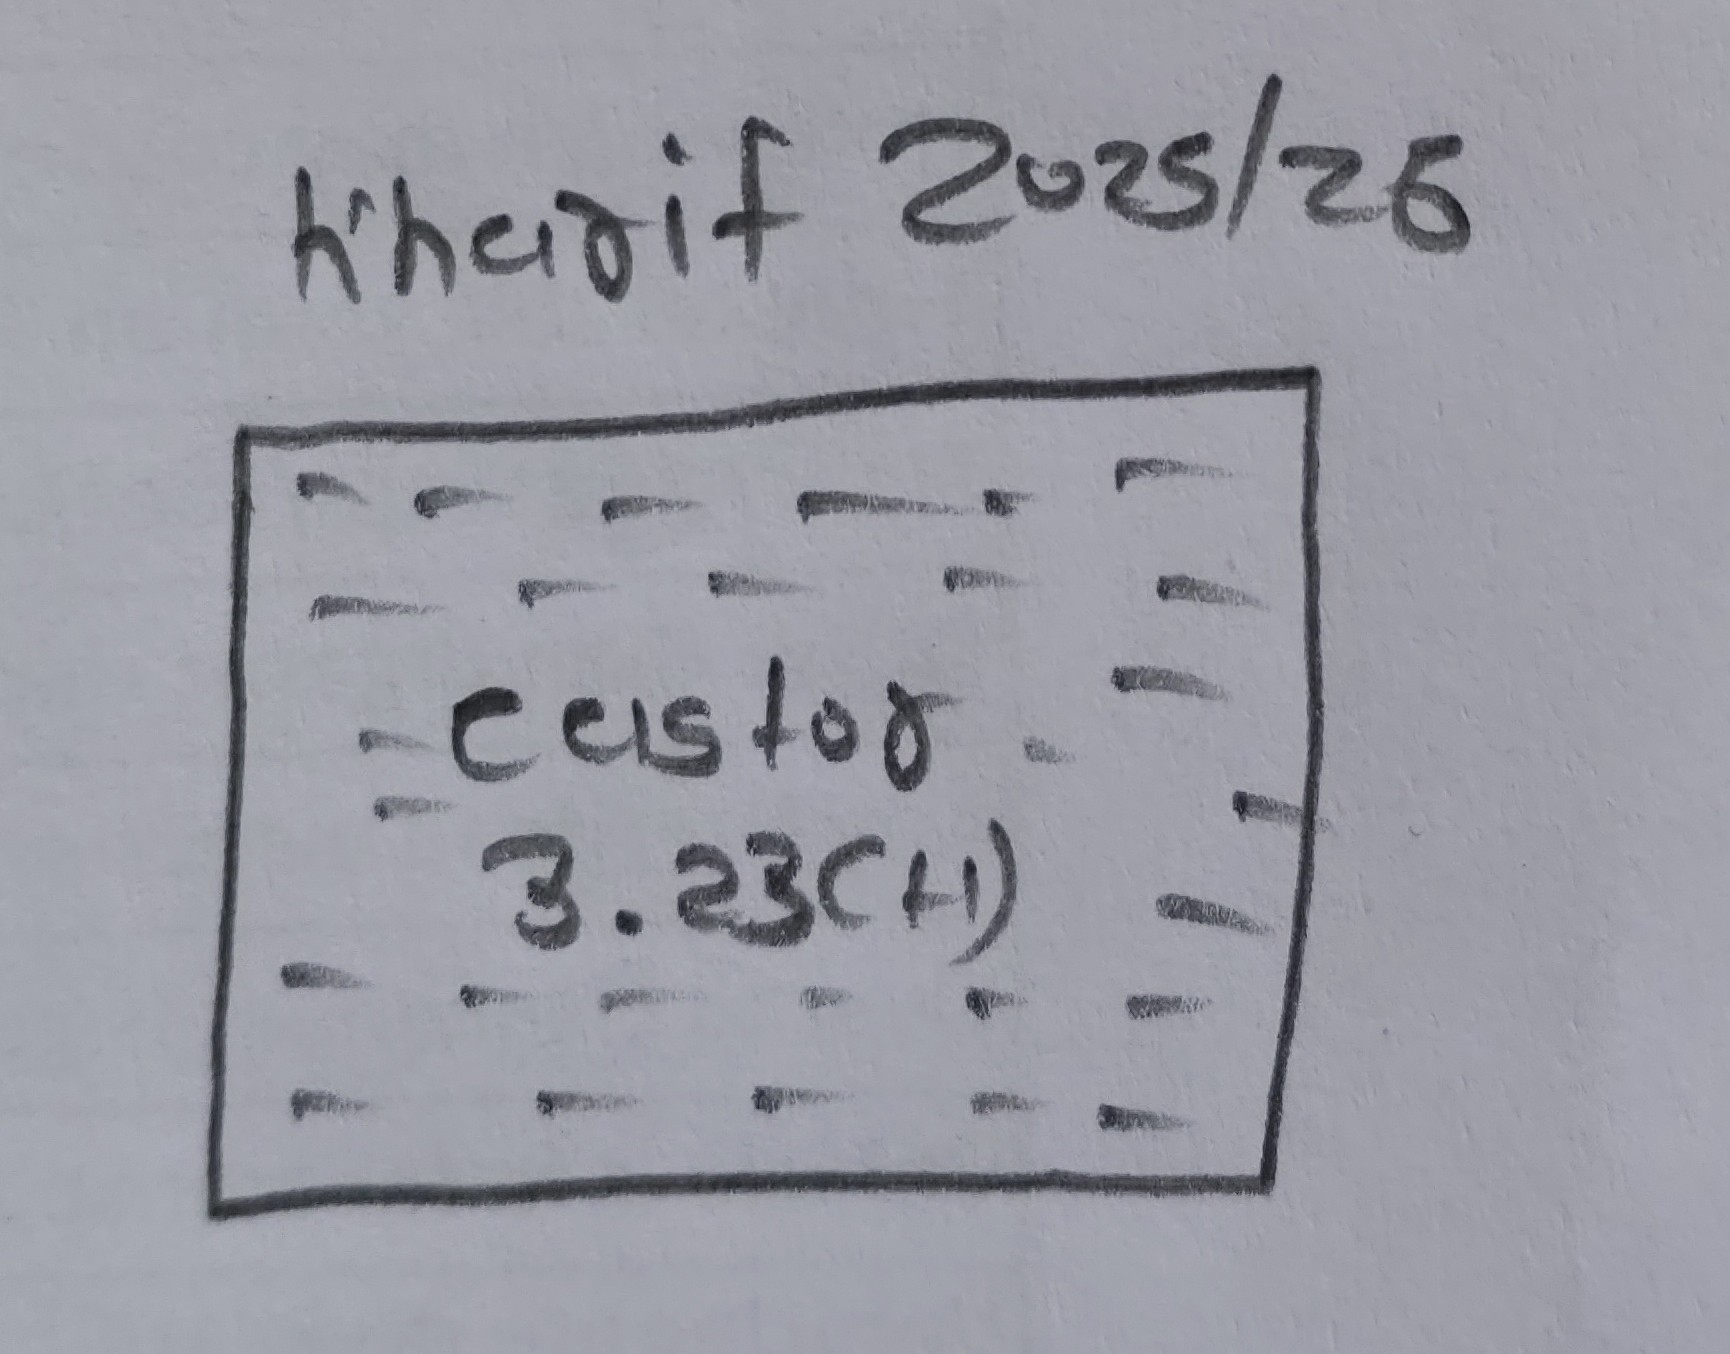 Kharif 2025/26
castor
3.23(H)